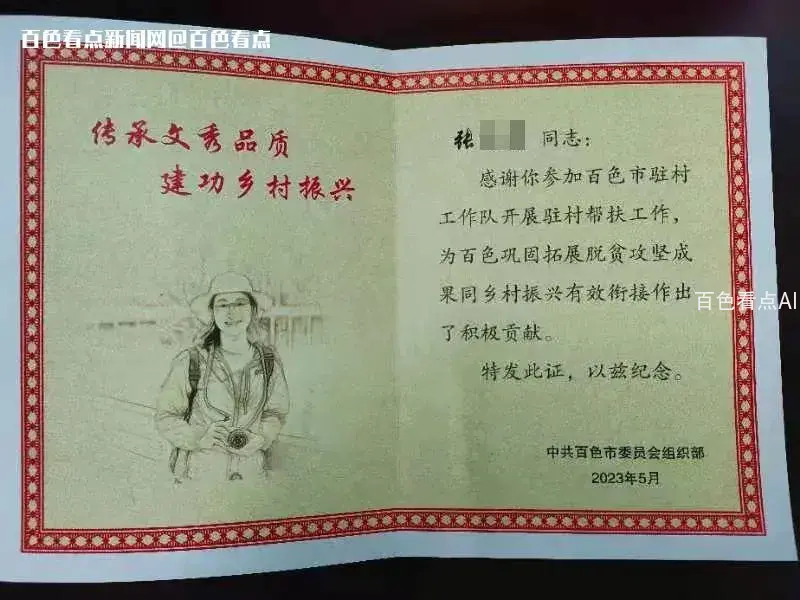 百色看点新闻网@百色看点
传承文秀品质
建功乡村振兴
张 同志：
感谢你参加百色市驻村
工作队开展驻村帮扶工作，
为百色巩固拓展脱贫攻坚成
果同乡村振兴有效衔接作出
了积极贡献。
特发此证，以兹纪念。
中共百色市委员会组织部
2023年5月
百色看点AI